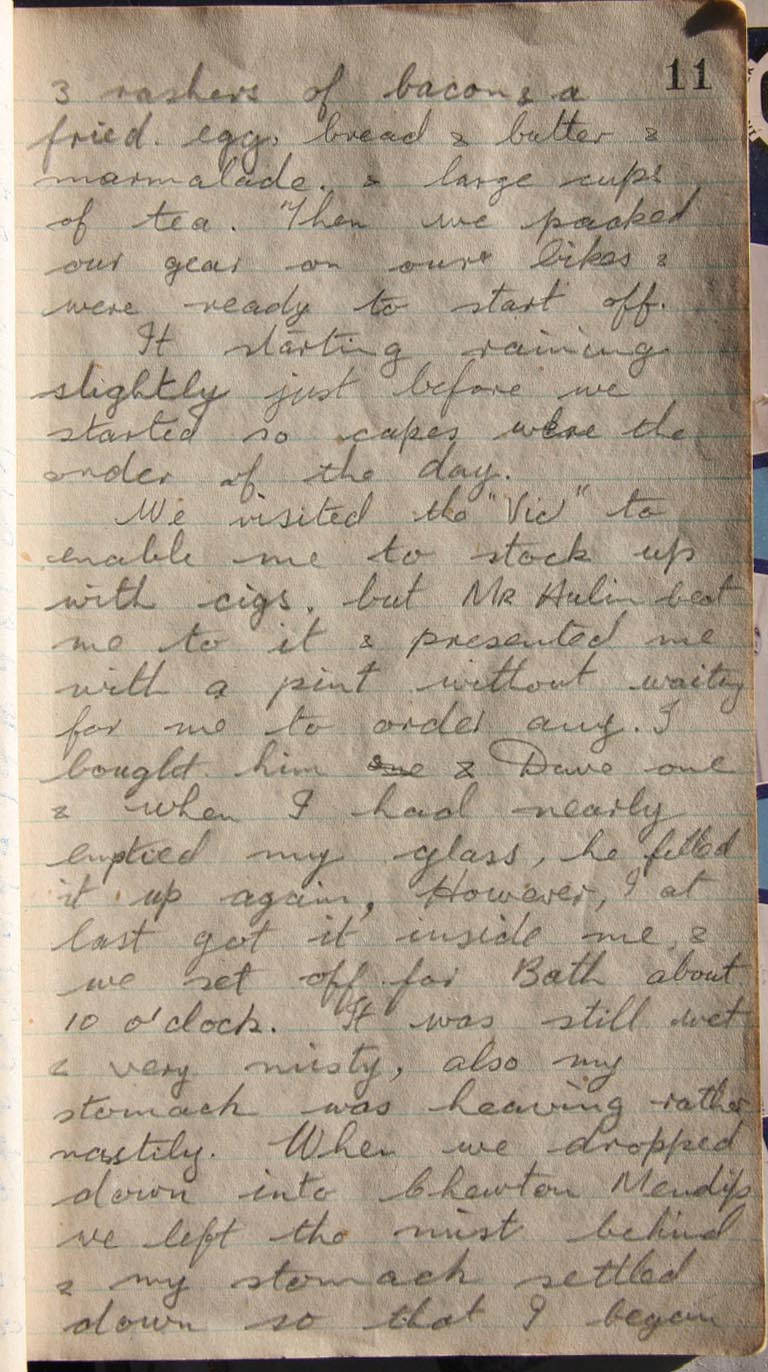 11
3 rashers of bacon & a
fried. egg, bread & butter &
marmalade. & large cups
of tea. Then we packed
our gear on our bikes &
were ready to start off.
It starting raining
slightly just before we
started so capes were the
order of the day.
We visited the "Vic" to
enable me to stock up
with cigs, but Mr Hulin beat
me to it & presented me
with a pint without waiting
for me to order any. I
bought him one & Dave one
& when I had nearly
emptied my glass, he filled
it up again, However, I at
last got it inside me, &
we set off for Bath about
10 o'clock. It was still wet
& very misty, also my
stomach was heaving rather
nastily. When we dropped
down into Chewton Mendip
we left the mist behind
& my stomach settled
down so that I began